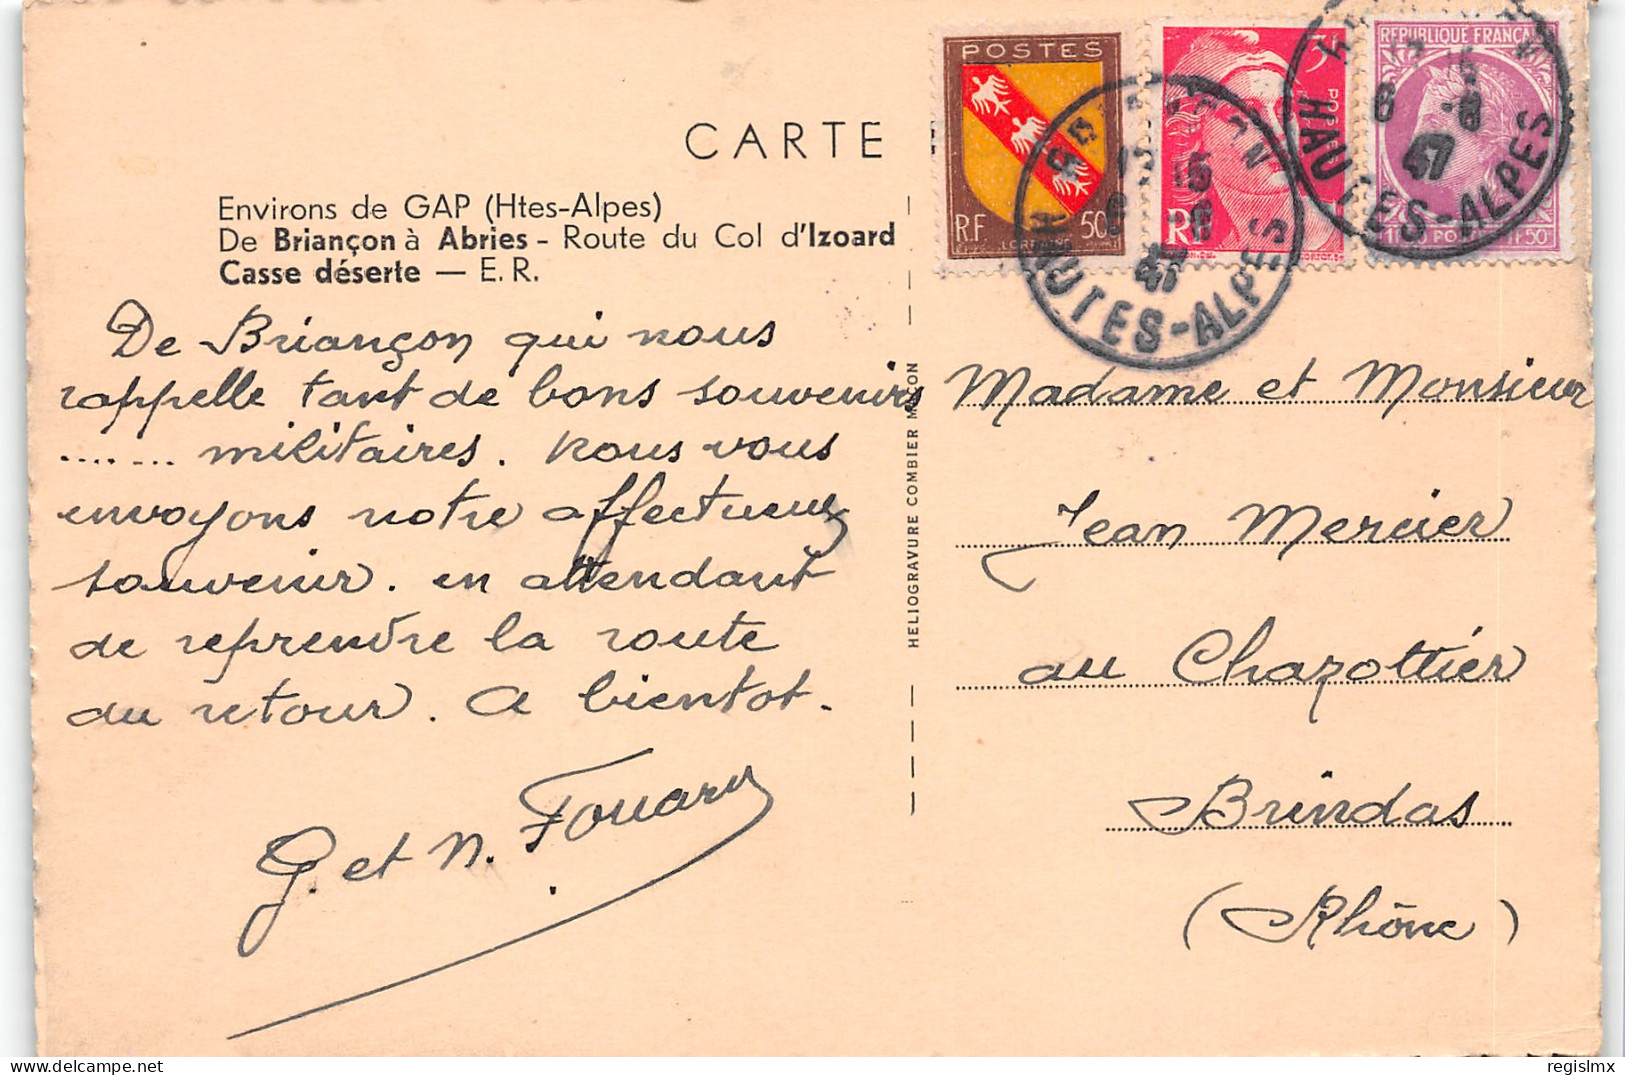 CARTE
Environs de GAP (Htes-Alpes)
De Briançon à Abries - Route du Col d'Izoard
Casse déserte — E. R.
De Briançon qui nous
rappelle tant de bons souvenirs
....... militaires. Nous vous
envoyons notre affectueux
souvenir. en attendant
de reprendre la route
du retour. A bientot.
G. et N. Fouary
HELIOGRAVURE COMBIER MACON
POSTES
R.F
50
3F
RF
REPUBLIQUE FRANÇAISE
1F50 POSTES 1F50
HAUTES-ALPES
47
HAUTES-ALPES
47
Madame et Monsieur
Jean Mercier
au Chazottier
Brindas
(Rhône)
regislmx